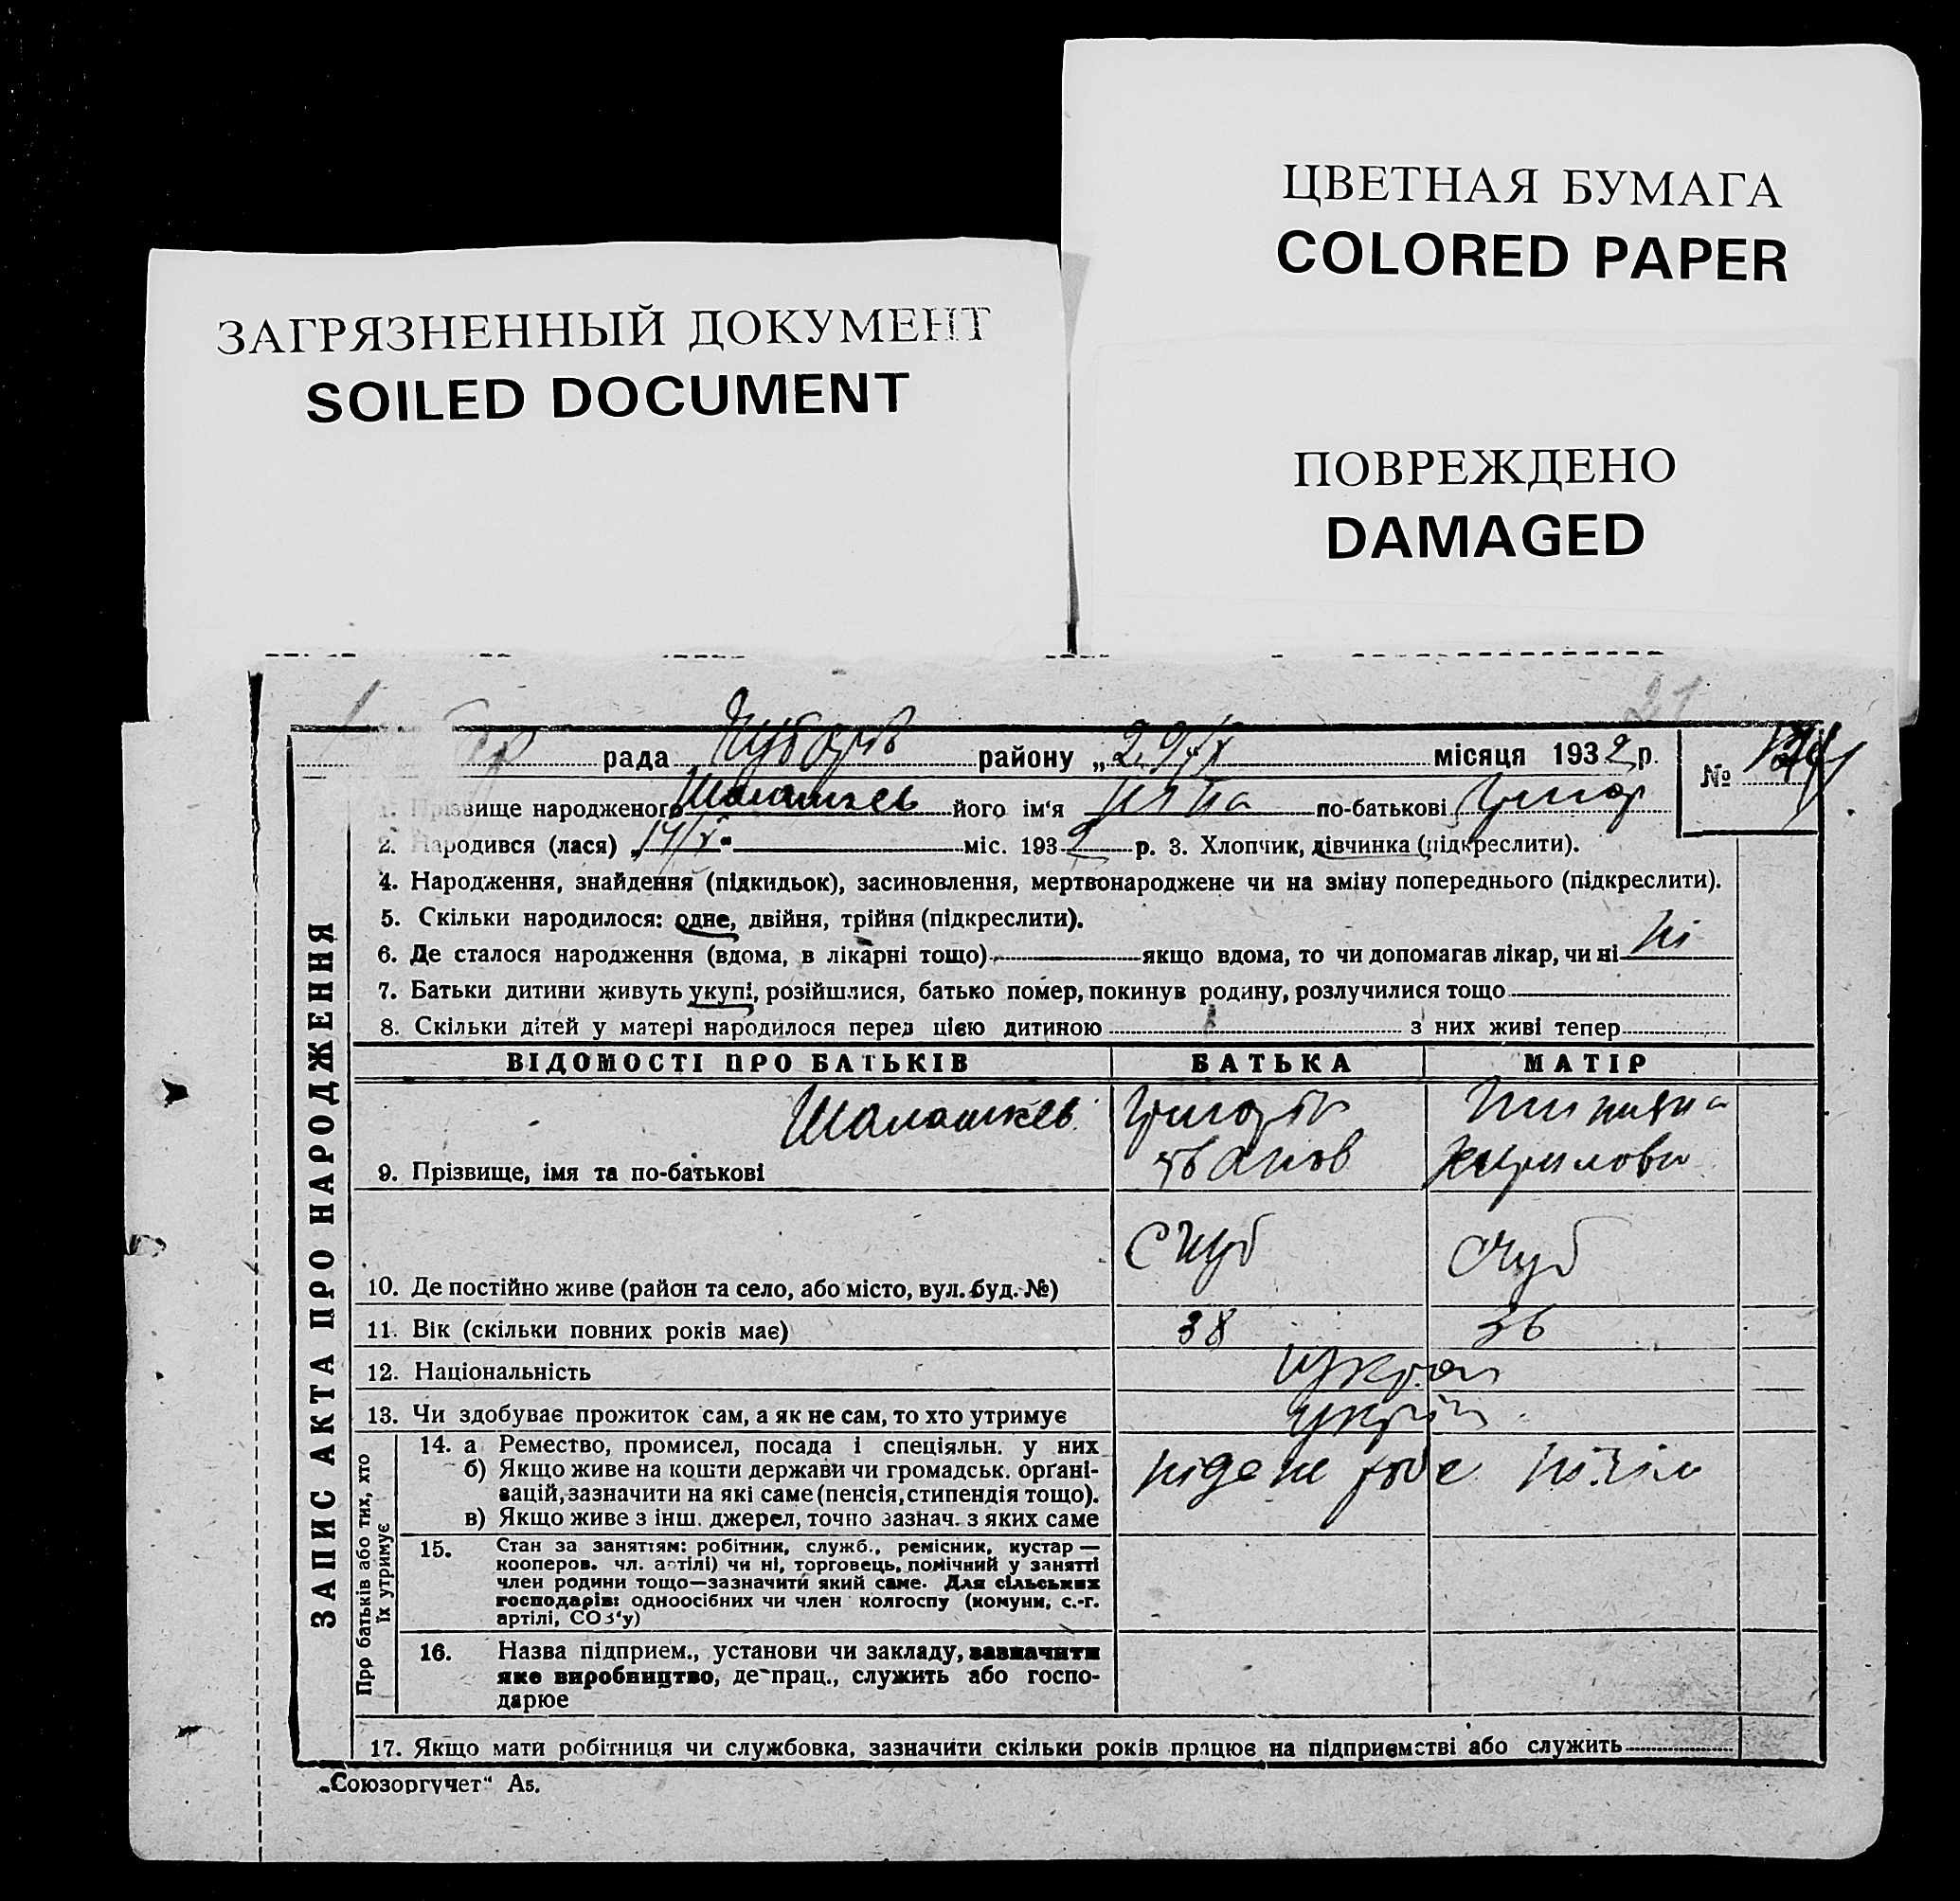 ЦВЕТНАЯ БУМАГА
COLORED PAPER
ЗАГРЯЗНЕННЫЙ ДОКУМЕНТ
SOILED DOCUMENT
ПОВРЕЖДЕНО
DAMAGED
21
рада району „29/X місяця 1932 р.
№
1. Прізвище народженого Шаламкев його ім‘я по-батькові Григор
2. Народився (лася) „14/X“ міс. 1932 р. 3. Хлопчик, дівчинка (підкреслити).
4. Народження, знайдення (підкидьок), засиновлення, мертвонароджене чи на зміну попереднього (підкреслити).
5. Скільки народилося: одне, двійня, трійня (підкреслити).
6. Де сталося народження (вдома, в лікарні тощо) якщо вдома, то чи допомагав лікар, чи ні ні
7. Батьки дитини живуть укупі, розійшлися, батько помер, покинув родину, розлучилися тощо
8. Скільки дітей у матері народилося перед цією дитиною з них живі тепер
ЗАПИС АКТА ПРО НАРОДЖЕННЯ
ВІДОМОСТІ ПРО БАТЬКІВ БАТЬКА МАТІР
Шаламкев Григорій
Іванов Кириловн
9. Прізвище, імя та по-батькові
С Чуб С Чуб
10. Де постійно живе (район та село, або місто, вул. буд. №)
11. Вік (скільки повних років має) 38 36
12. Національність україн
13. Чи здобуває прожиток сам, а як не сам, то хто утримує
Про батьків або тих, хто їх утримує
14. а Ремество, промисел, посада і спеціяльн. у них
б) Якщо живе на кошти держави чи громадськ. органі-
зацій, зазначити на які саме (пенсія, стипендія тощо).
в) Якщо живе з інш. джерел, точно зазнач. з яких саме
15. Стан за заняттям: робітник, служб., ремісник, кустар—
кооперов. чл. артілі) чи ні, торговець, помічний у занятті
член родини тощо—зазначити який саме. Для сільських
господарів: одноосібних чи член колгоспу (комуни, с.-г.
артілі, СОЗ‘у)
16. Назва підприєм., установи чи закладу, зазначити
яке виробництво, де прац., служить або госпо-
дарює
17. Якщо мати робітниця чи службовка, зазначити скільки років працює на підприємстві або служить
„Союзоргучет“ А5.